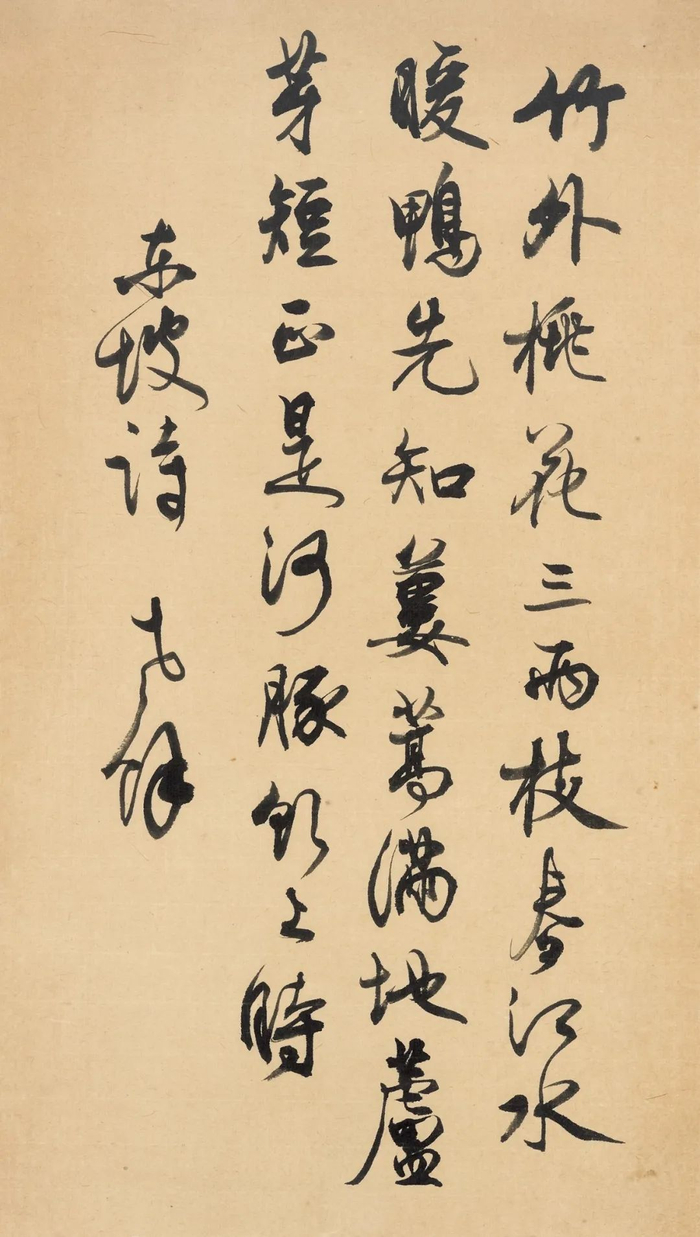 竹外桃花三兩枝春江水
暖鴨先知蔞蒿滿地蘆
芽短正是河豚欲上時
東坡詩